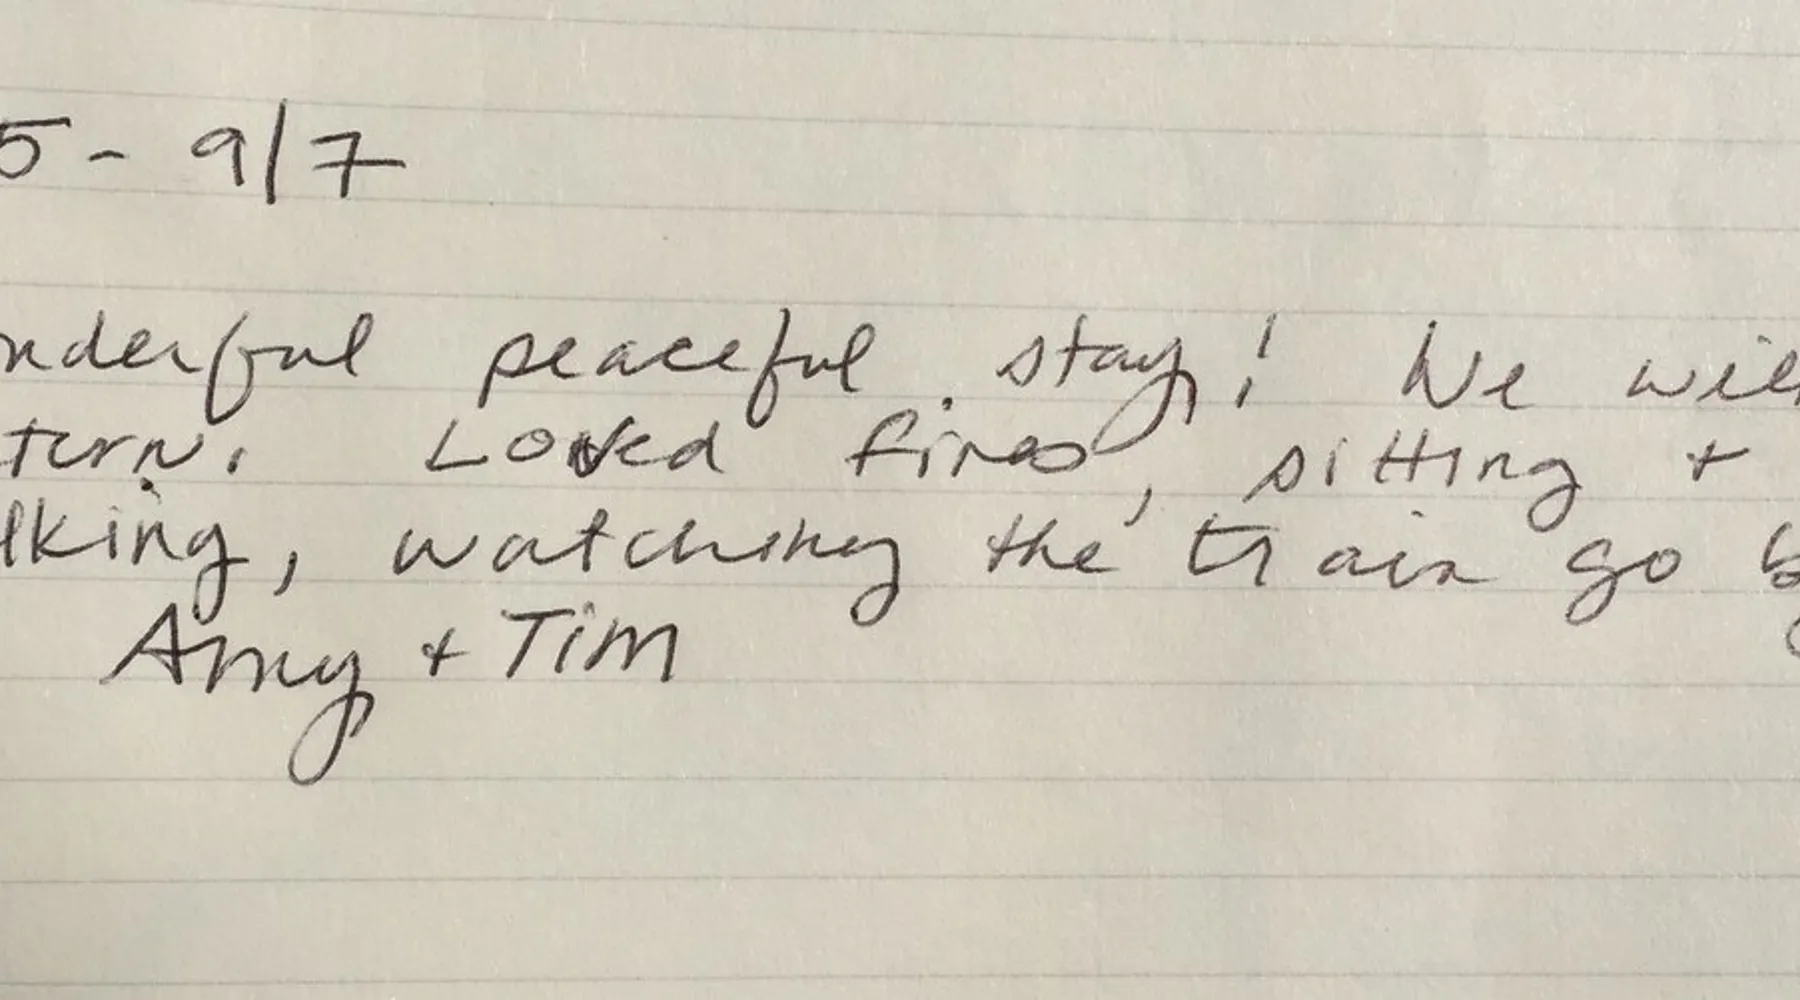 5 - 9/7
nderful peaceful stay! We will
turn. Loved fires, sitting +
lking, watching the train go by
Amy + Tim